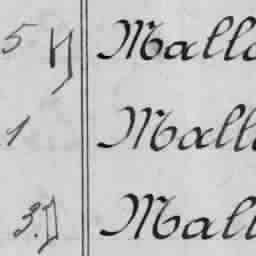 5 Mall
1 Mall
3. Mall